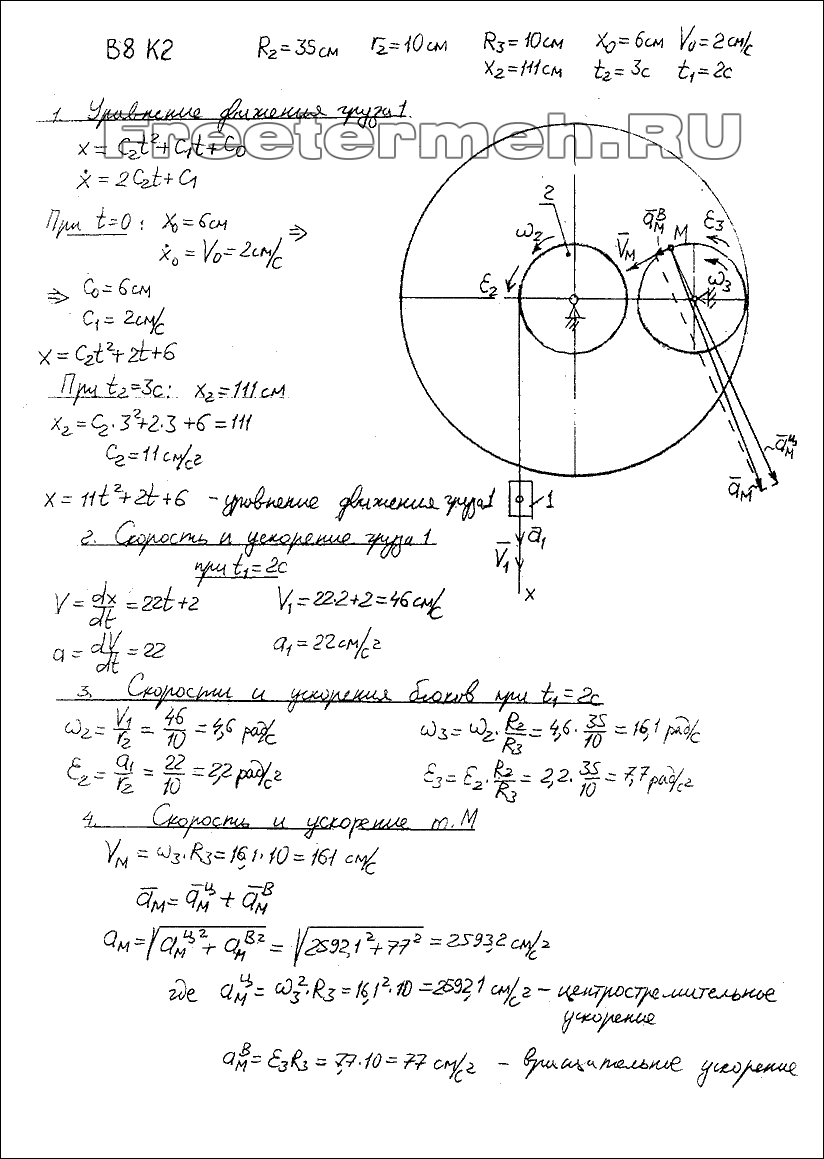 В8 К2 R₂=35см r₂=10см R₃=10см x₀=6см V₀=2см/с
x₂=111см t₂=3с t₁=2с
1. Уравнение движения груза 1.
Freetermeh.RU
x = C₂t²+C₁t+C₀
ẋ = 2C₂t+C₁
При t=0: x₀=6см
ẋ₀=V₀=2см/с ⇒
⇒ C₀=6см
C₁=2см/с
x=C₂t²+2t+6
При t₂=3с: x₂=111см
x₂=C₂·3²+2·3+6=111
C₂=11см/с²
x=11t²+2t+6 - уровнение движения груза 1
2
ω₂
ε₂
V̄м
āмᴮ
M
ε₃
ω₃
āмᶣ
āм
1
ā₁
V̄₁
x
2. Скорость и ускорение груза 1
при t₁=2с
V=dx/dt=22t+2 V₁=22·2+2=46см/с
a=dV/dt=22 a₁=22см/с²
3. Скорости и ускорения блоков при t₁=2с
ω₂=V₁/r₂=46/10=4,6 рад/с ω₃=ω₂·R₂/R₃=4,6·35/10=16,1 рад/с
ε₂=a₁/r₂=22/10=2,2рад/с² ε₃=ε₂·R₂/R₃=2,2·35/10=7,7рад/с²
4. Скорость и ускорение т.М
Vм=ω₃·R₃=16,1·10=161 см/с
āм=āмᶣ+āмᴮ
aм=√(aмᶣ²+aмᴮ²)=√(2592,1²+77²)=2593,2 см/с²
где aмᶣ=ω₃²·R₃=16,1²·10=2592,1 см/с² - центростремительное
ускорение
aмᴮ=ε₃R₃=7,7·10=77 см/с² - вращательное ускорение